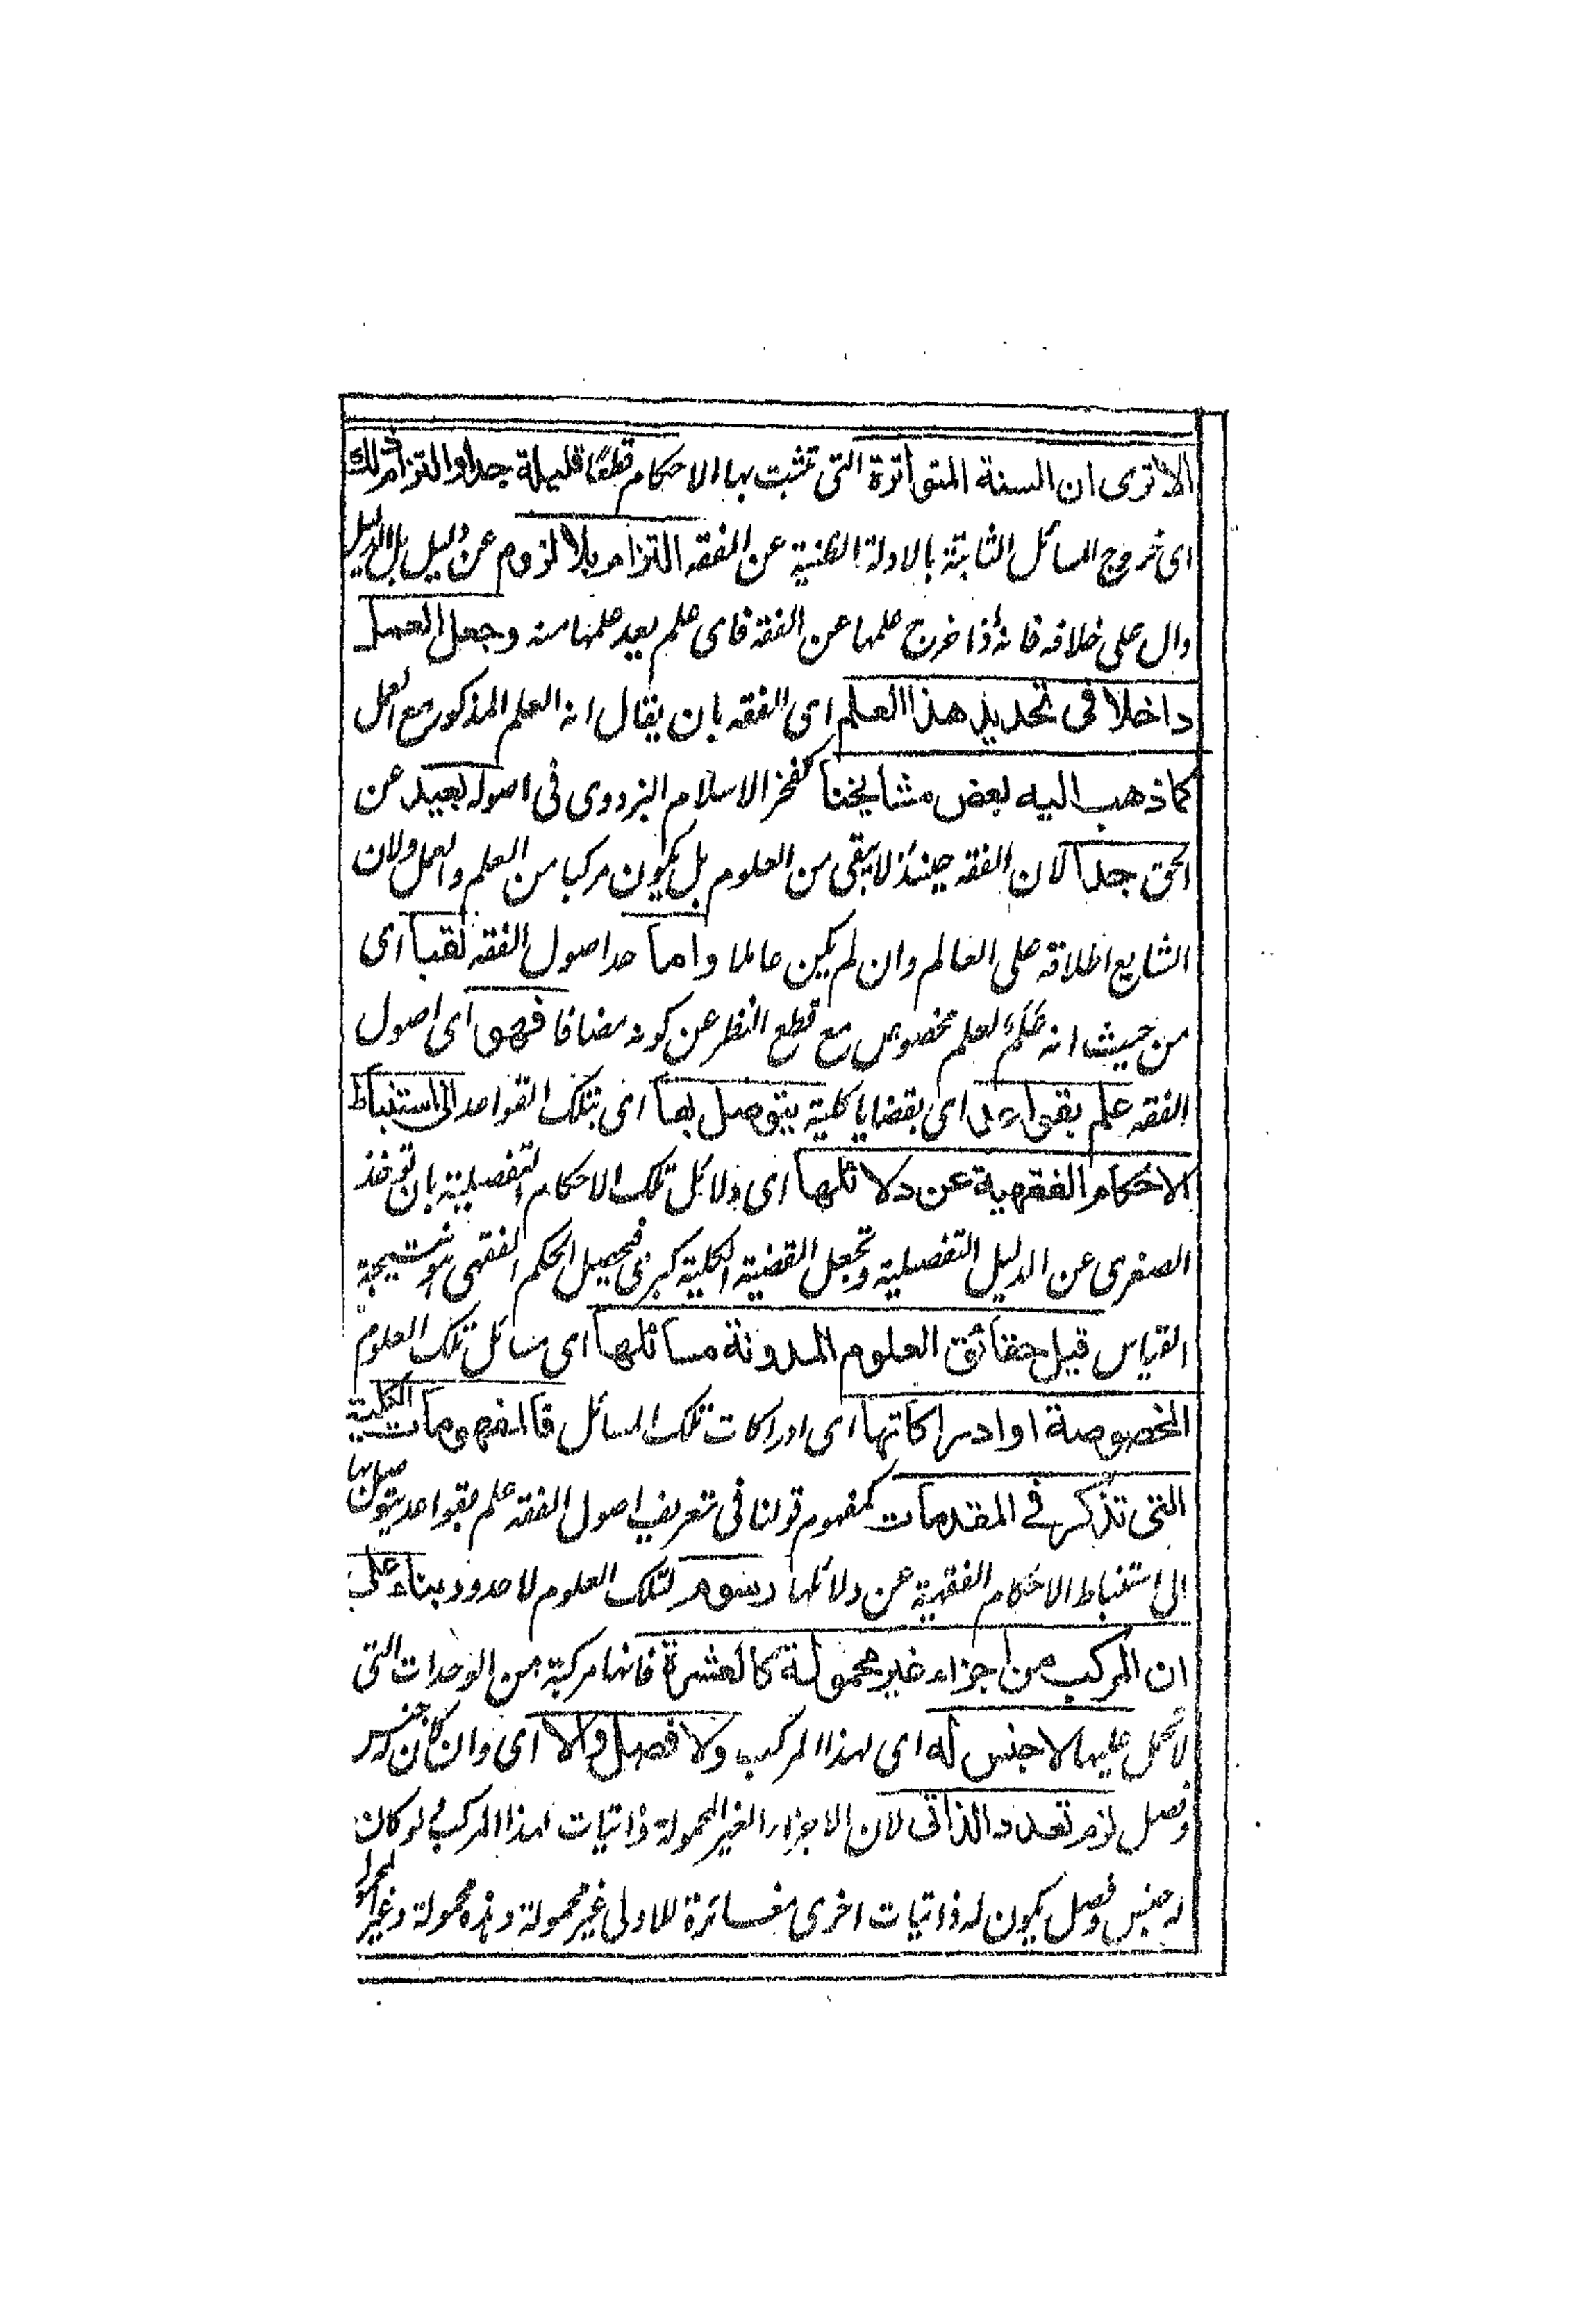 الا ترى ان السنة المتواترة التى تثبت بها الاحكام قطعًا قليلة جدا والتزام ذلك
اى خروج المسائل الثابتة بالادلة الظنية عن الفقه التزام بلا لزوم عن دليل بل الدليل
دال على خلافه فانه اذا خرج علمها عن الفقه فاى علم يعيد علمها منه وجعل العمل
داخلا فى تحديد هذا العلم اى الفقه بان يقال انه العلم المذكور مع العمل
كما ذهب اليه بعض مشايخنا كفخر الاسلام البزدوى فى اصوله بعيد عن
الحق جدا لان الفقه حينئذ لا يبقى من العلوم بل يكون مركبا من العلم والعمل ولان
الشايع اطلاقه على العالم وان لم يكن عاملا واما حد اصول الفقه لقبا اى
من حيث انه علم لعلم مخصوص مع قطع النظر عن كونه مضافا فهو اى اصول
الفقه علم بقواعد اى بقضايا كلية يتوصل بها اى بتلك القواعد الى استنباط
الاحكام الفقهية عن دلائلها اى دلائل تلك الاحكام التفصيلية بان توخذ
الصغرى عن الدليل التفصيلية وتجعل القضية الكلية كبرى فيحصل الحكم الفقهى هو نتيجة
القياس قيل حقائق العلوم المدونة مسائلها اى مسائل تلك العلوم
المخصوصة او ادراكاتها اى ادراكات تلك المسائل فالمفهومات الكلية
التى تذكر فى المقدمات كمفهوم قولنا فى تعريف اصول الفقه علم بقواعد يتوصل بها
الى استنباط الاحكام الفقهية عن دلائلها رسوم لتلك العلوم لا حدود بناء على
ان المركب من اجزاء غير محمولة كالعشرة فانها مركبة من الوحدات التى
لا تحمل عليها لا جنس له اى لهذا المركب ولا فصل والا اى وان كان له جنس
وفصل لزم تعدد الذاتى لان الاجزاء الغير المحمولة ذاتيات لهذا المركب فلو كان
له جنس وفصل يكون له ذاتيات اخرى مغائرة للاولى غير محمولة وهذه محمولة وغير المحمول